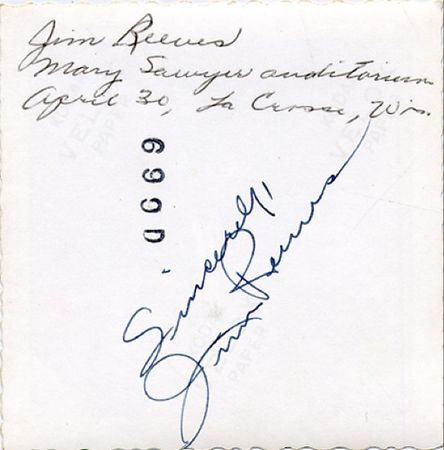 Jim Reeves
Mary Sawyer auditorium
April 30, La Crosse, Wis.
0669
Sincerely,
Jim Reeves